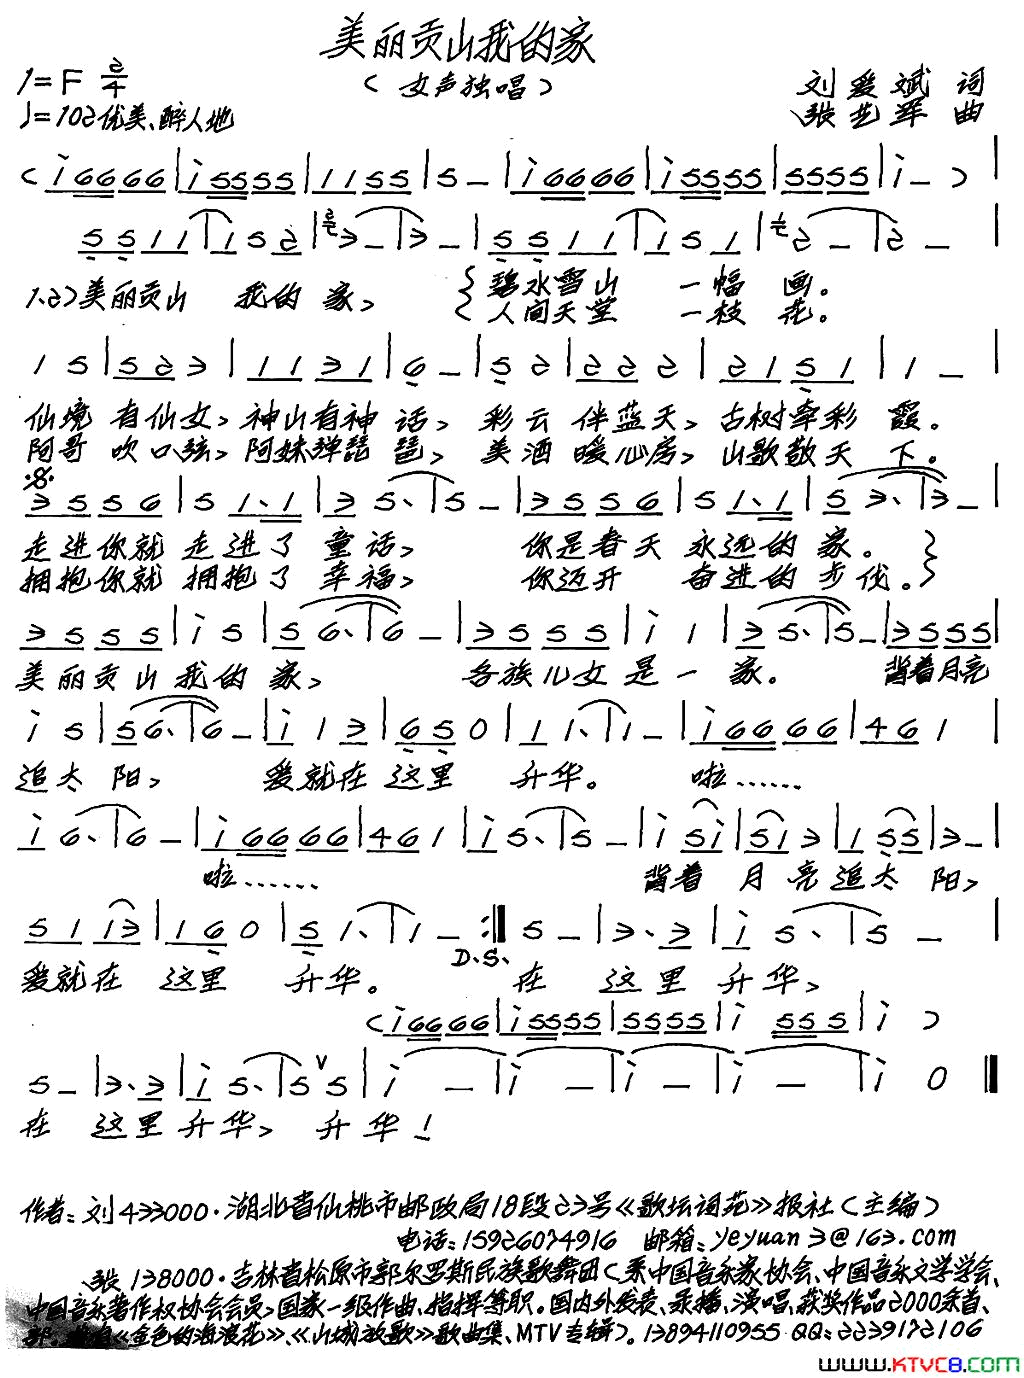 美丽贡山我的家
1=F 2/4
（女声独唱）
刘爱斌 词
♩=102优美、醉人地
张艺军 曲
(i6666|i5555|1155|5–|i6666|i5555|5555|i–)
5511|152|3–|3–|5511|151|2–|2–
1.2)美丽贡山 我的家，{碧水雪山 一幅画。
{人间天堂 一枝花。
15|523|1131|6–|52|222|2151|1–
仙境有仙女，神山有神话，彩云伴蓝天，古树牵彩霞。
阿哥吹口弦，阿妹弹琵琶，美酒暖心房，山歌敬天下。
3556|51.1|35.|5–|3556|51.1|53.|3–
走进你就走进了童话，你是春天永远的家。}
拥抱你就拥抱了幸福，你迈开 奋进的步伐。}
3555|i5|56.|6–|3555|i1|35.|5–|3555|
美丽贡山我的家，各族儿女是一家。背着月亮
i5|56.|6–|i13|650|11.|1–|i6666|461
追太阳，爱就在这里升华。啦……
i6.|6–|i6666|461|i5.|5–|i5i|513|155|3–|
啦…… 背着月亮追太阳，
5113|160|51.|1–:‖5–|3.3|i5.|5–
D.S.
爱就在这里升华。在这里升华，
(i6666|i5555|5555|i555|i)
5–|3.3|i5.|5∨5|i–|i–|i–|i–|i0‖
在这里升华，升华！
作者：刘433000·湖北省仙桃市邮政局18段23号《歌坛词苑》报社（主编）
电话：15926074916 邮箱：yeyuan3@163.com
张138000·吉林省松原市郭尔罗斯民族歌舞团（系中国音乐家协会、中国音乐文学学会、
中国音乐著作权协会会员，国家一级作曲、指挥等职。国内外发表、录播、演唱、获奖作品2000余首、
《金色的海浪花》、《山城放歌》歌曲集、MTV专辑）。13894110955 QQ：2239172106
www.KTVC8.com